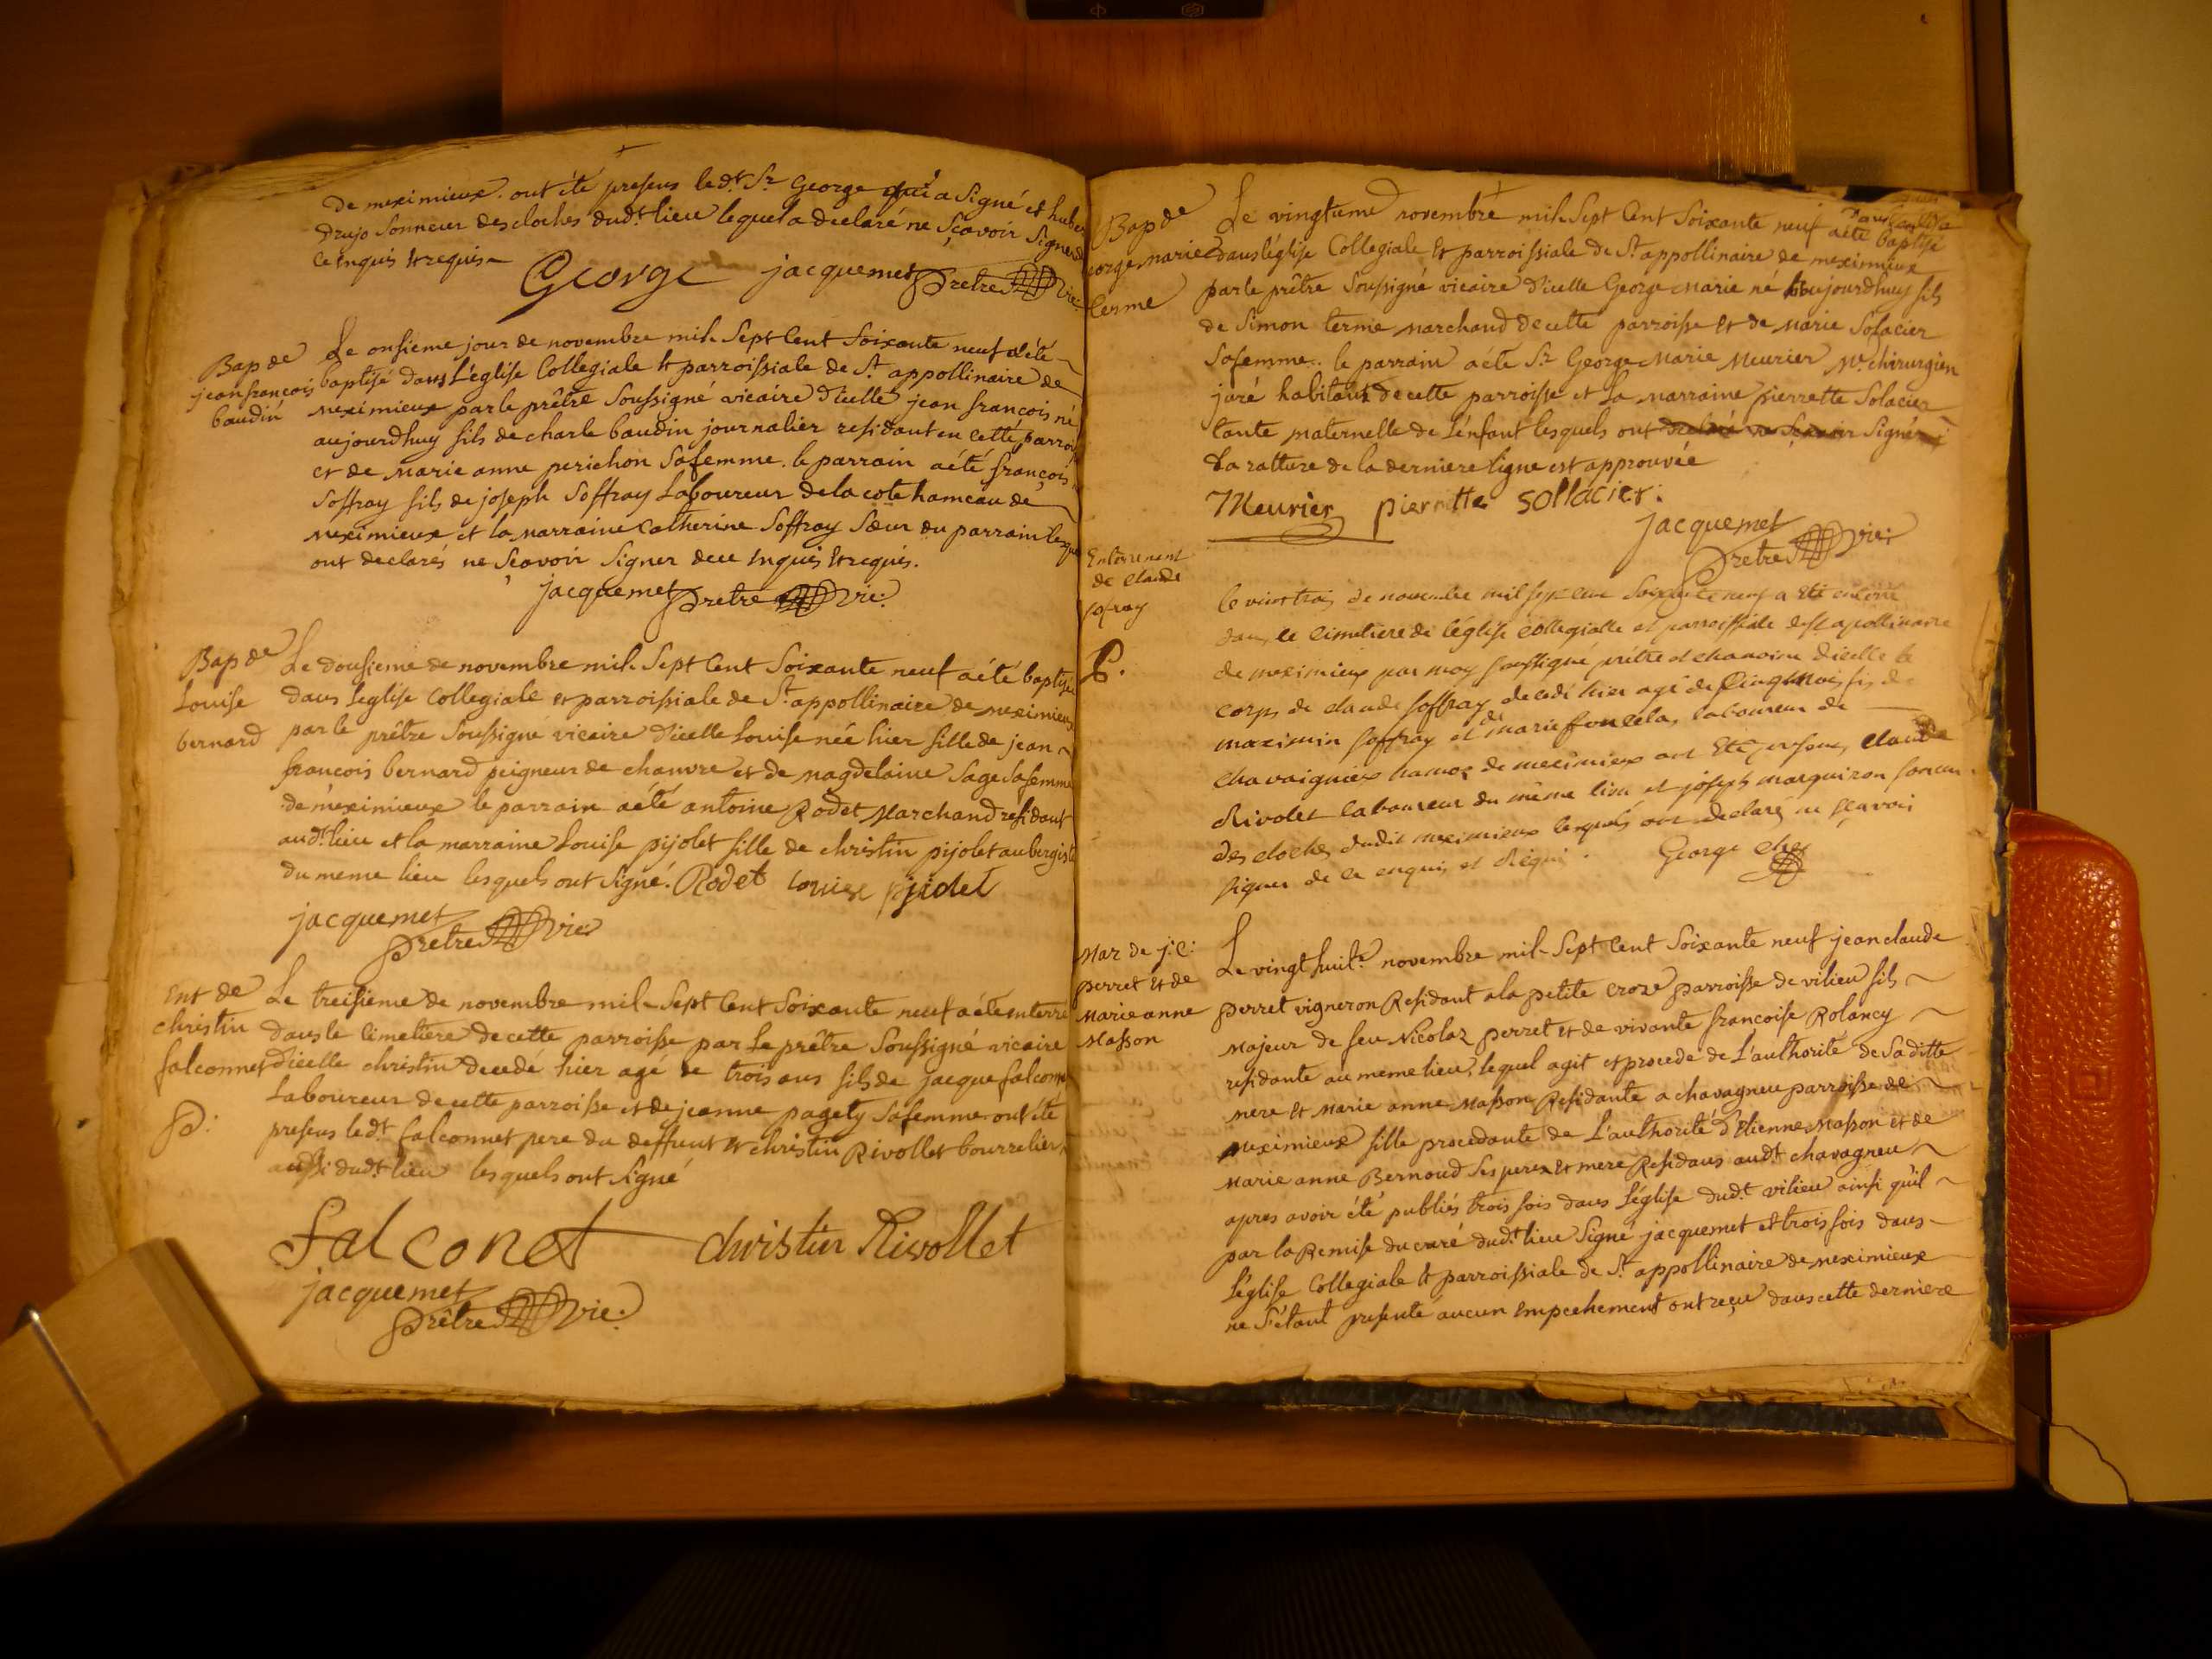 de meximieux. ont été presens le dt. Sr. George qui a Signé et huber
drujo Sonneur des cloches dudt lieu lequel a declaré ne Sçavoir Signer de
ce enquis et requis
George jacquemet prêtre vic:
Bap de
jean françois
baudin
Le onsieme jour de novembre mil Sept Cent Soixante neuf a été
baptisé dans L'église Collegiale et parroissiale de St. appollinaire de
meximieux par le prêtre Soussigné vicaire d'icelle jean françois né
aujourdhuy fils de charle baudin journalier residant en cette parroi
et de marie anne perichon Safemme. le parrain a été françois
Soffray fils de joseph Soffray Laboureur de la cote hameau de
meximieux et la marraine Catherine Soffray Sœur du parrain lesque
ont declarés ne Sçavoir Signer de ce enquis et requis.
jacquemet prêtre vic:
Bap de
Louise
bernard
Le dousieme de novembre mil Sept Cent Soixante neuf a été baptisée
dans l'eglise Collegiale et parroissiale de St. appollinaire de meximieux
par le prêtre Soussigné vicaire d'icelle Louise née hier fille de jean
françois bernard peigneur de chanvre et de magdelaine Sage Safemme
de meximieux le parrain a été antoine Rodet Marchand residant
audt. lieu et la marraine Louise pijolet fille de christin pijolet aubergiste
du meme lieu lesquels ont Signé. Rodet louise pijolet
jacquemet
prêtre vic:
Ent de
christin
falconnet
Le treisieme de novembre mil Sept Cent Soixante neuf a été enterré
dans le Cimetiere de cette parroisse par Le prêtre Soussigné vicaire
d'icelle christin decedé hier agé de trois ans fils de jacque falconnet
Laboureur de cette parroisse et de jeanne pagety Safemme ont été
presens le dt. falconnet pere du deffunt et christin Rivollet bourrelier
aussi dudt. lieu lesquels ont Signé
falconet christin Rivollet
jacquemet
prêtre vic:
Bap de
eorge marie
terme
Le vingtume novembre mil Sept Cent Soixante neuf a été baptisé
Dans l'église Collegiale et parroissiale de St. appollinaire de meximieux
par le prêtre Soussigné vicaire d'icelle George Marie né aujourdhuy fils
de Simon terme marchand de cette parroisse et de Marie Solacier
Safemme. le parrain a été Sr. George Marie Meurier Me. chirurgien
juré habitant de cette parroisse et La marraine pierrette Solacier
tante maternelle de L'enfant lesquels ont declaré ne Sçavoir Signé
La rature de la derniere ligne est approuvée
Meurier pierrette sollacier.
jacquemet
prêtre vic:
Enterrement
de claude
sofray
le vint trois de novembre mil sept cent Soixante neuf a Eté enterré
dans le Cimetiere de l'église collegialle et parroissiale de St apollinaire
de meximieux par moy soussigné prêtre et chanoine d'icelle le
corps de claude soffray decedé hier agé de cinq mois fis de
maximin soffray et de marie foncela, laboureur de
chavaignieux hamos de meximieux ont Eté presens claude
Rivolet laboureur du même lieu et joseph marquiron sonneu
des cloches dudit meximieux lesquels ont declaré ne sçavoir
signer de ce enquis et Requis. George che
Mar de j: C:
perret et de
Marie anne
Masson
Le vingt huite. novembre mil Sept Cent Soixante neuf jean claude
perret vigneron Residant a la petite Croze parroisse de vilieu fils
Majeur de feu Nicolaz perret et de vivante françoise Rolancy
residante au meme lieu, lequel agit et procede de L'authorité de Saditte
mere et Marie anne Masson Residante a chavagneu parroisse de
meximieux fille procedante de L'authorité d'Etienne Masson et de
Marie anne Bernoud Ses perex et mere Residans audt. chavagneu
apres avoir été publiés trois fois dans L'église dudt. vilieu ainsi qu'il
par la Remise du curé dudt. lieu Signé jacquemet et trois fois dans
L'église Collegiale et parroissiale de St. appollinaire de meximieux
ne S'étant presenté aucun Empechement ont reçu dans cette derniere